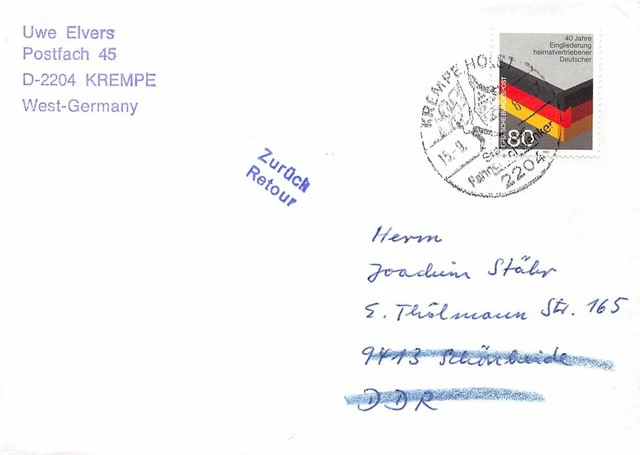 Uwe Elvers
Postfach 45
D-2204 KREMPE
West-Germany
40 Jahre
Eingliederung
heimatvertriebener
Deutscher
80
KREMPE HOLST
15.-9.
2204
Zurück
Retour
Herrn
Joachim Stähr
E. Thälmann Str. 165
9413 Schönheide
DDR